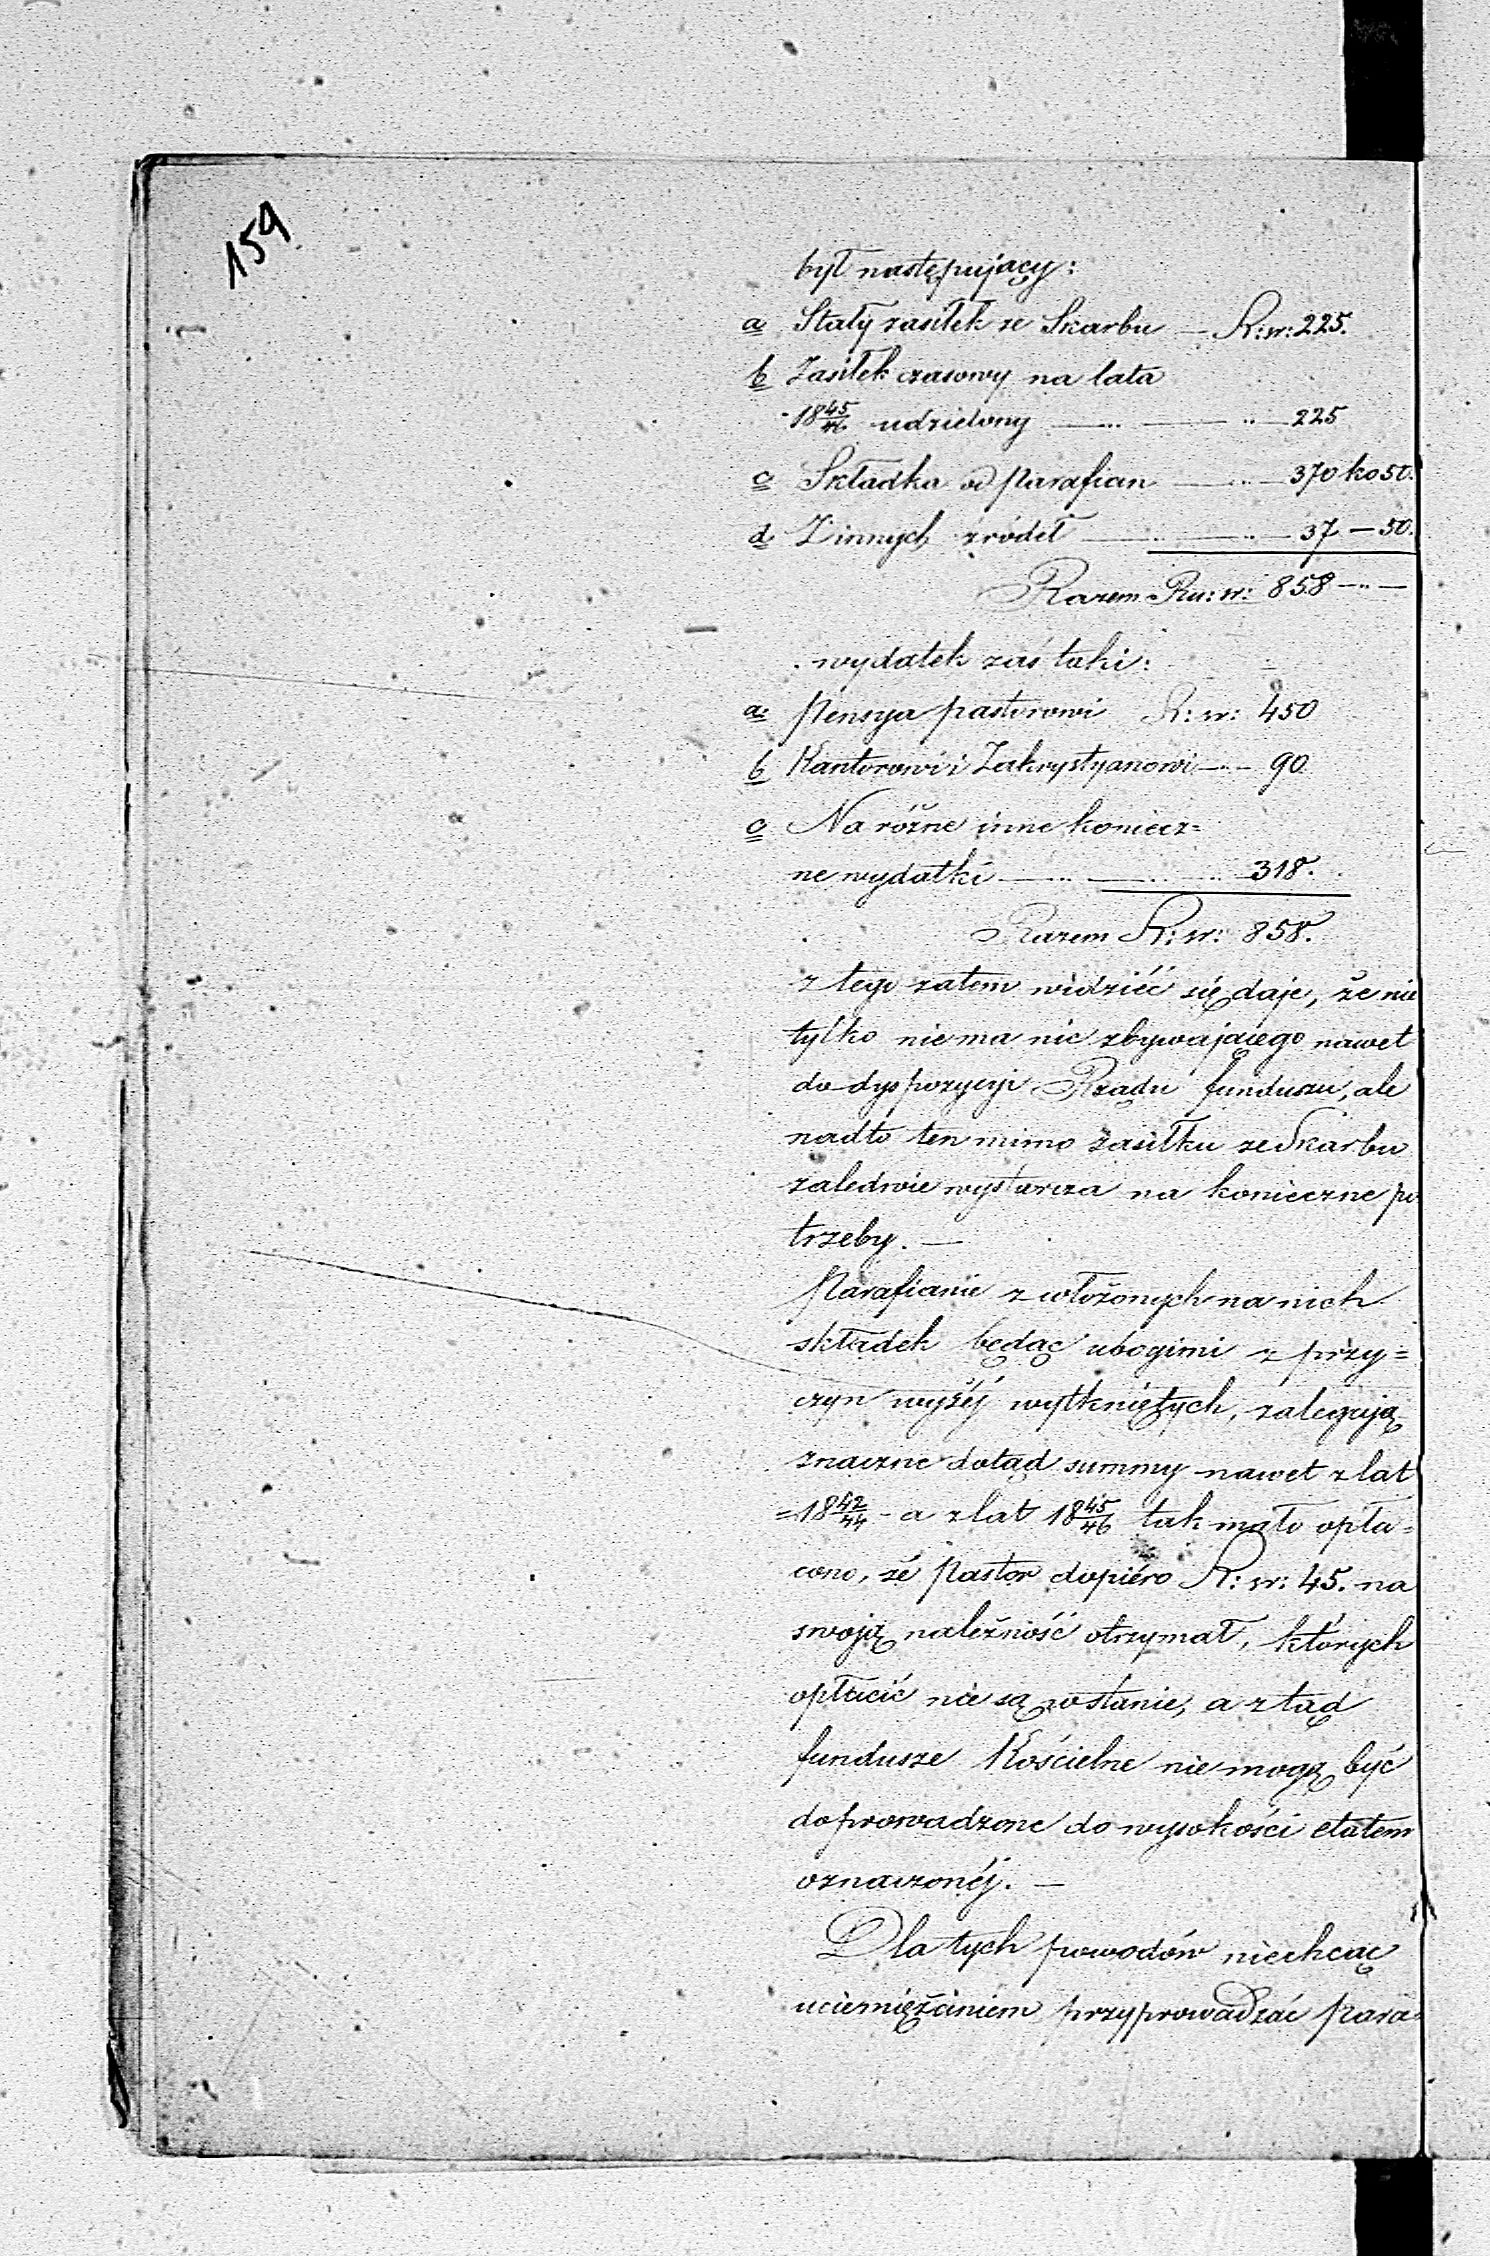 159
był następujący:
a Stały zasiłek ze Skarbu — R: sr: 225.
b Zasiłek czasowy na lata
18 45/46 udzielony — " — " — 225
c Składka od Parafian — " — 370 ko 50.
d Z innych źródeł — " — " — 37 — 50.
Razem Ru: sr: 858 — " —
wydatek zaś taki:
a: Pensya pastorowi R: sr: 450
b Kantorowi i Zakrystyanowi — " — 90
c Na różne inne koniecz=
ne wydatki — " — " — 318.
Razem R: sr: 858.
z tego zatem widzićć się daje, że nie
tylko niema nic zbywającego nawet
do dyspozycyi Rządu funduszu, ale
nadto ten mimo zasiłku ze Skarbu
zaledwie wystarcza na konieczne po
trzeby. —
Parafianie z włożonych na nich
składek będąc ubogimi z przy=
czyn wyżéj wytkniętych, zalegają
znaczne dotąd summy nawet z lat
=18 42/44 - a z lat 18 45/46 tak mało opła=
cono, żé Pastor dopiéro R: sr: 45. na
swoją należność otrzymał, których
opłacić nie są wstanie, a ztąd
fundusze Kościelne nie mogą być
doprowadzone do wysokości etatem
oznaczonéj. —
Dla tych powodów niechcąc
uciemiężeniem przyprowadzać Para=